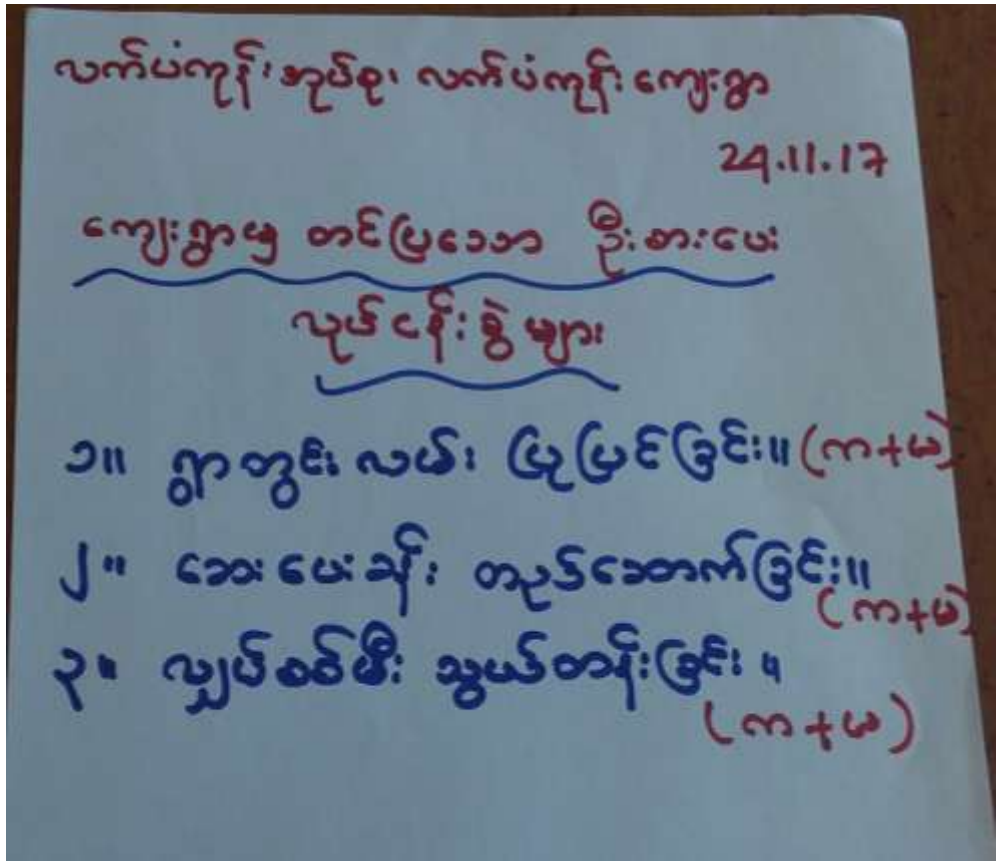 လက်ပံကုန်းအုပ်စု၊ လက်ပံကုန်းကျေးရွာ
24.11.17
ကျေးရွာမှ တင်ပြသော ဦးစားပေး
လုပ်ငန်းခွဲများ
၁။ ရွာတွင်းလမ်း ပြုပြင်ခြင်း။ (က+မ)
၂။ ဆေးပေးခန်း တည်ဆောက်ခြင်း။
(က+မ)
၃။ လျှပ်စစ်မီး သွယ်တန်းခြင်း။
(က+မ)